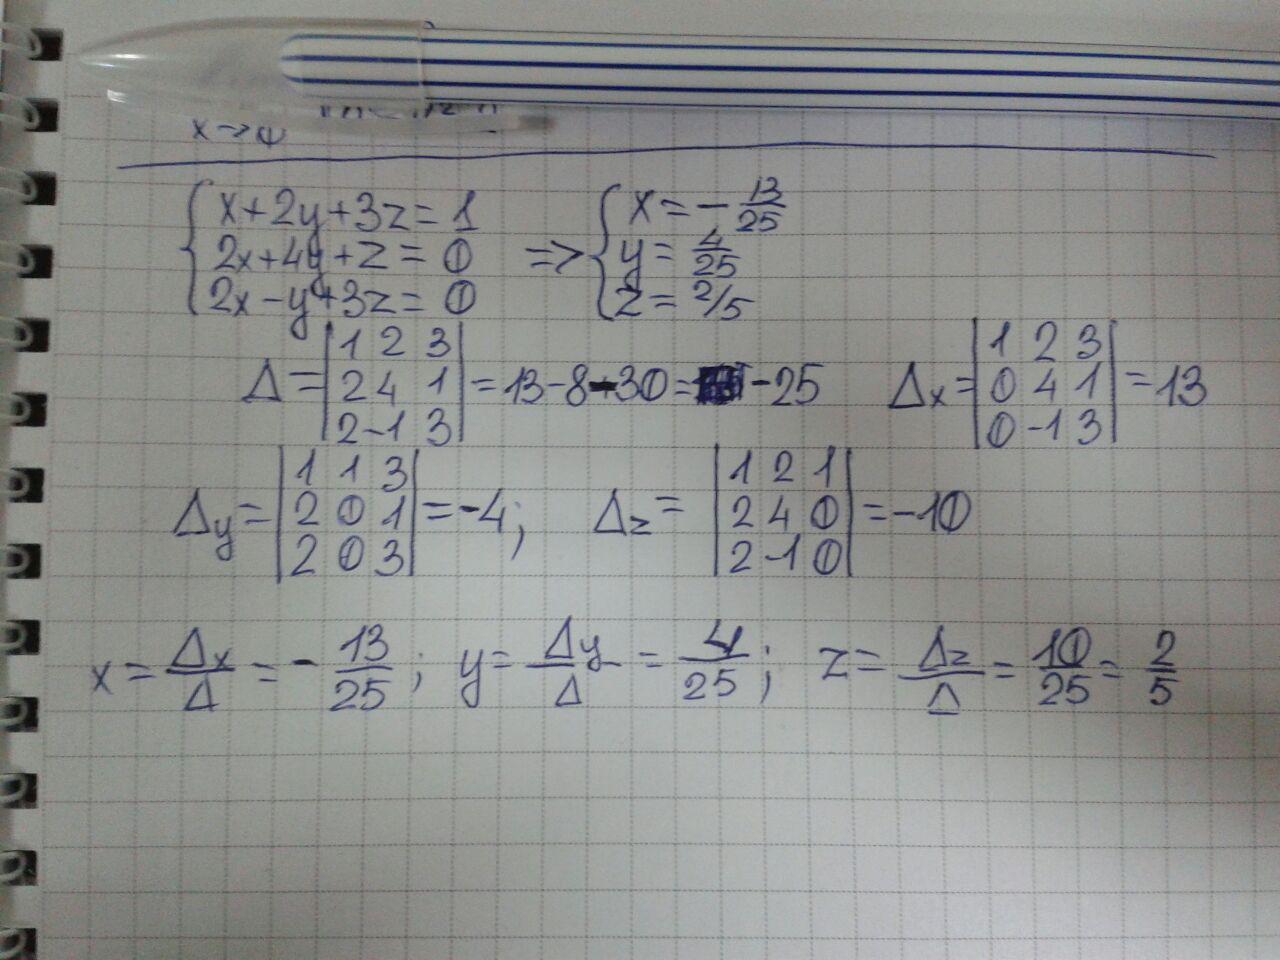 x → 0
{ x+2y+3z = 1
2x+4y+z = 0
2x-y+3z = 0 => { x = - 13/25
y = 4/25
z = 2/5
Δ = |1 2 3
2 4 1
2 -1 3| = 13-8-30 = -25
Δx = |1 2 3
0 4 1
0 -1 3| = 13
Δy = |1 1 3
2 0 1
2 0 3| = -4;
Δz = |1 2 1
2 4 0
2 -1 0| = -10
x = Δx/Δ = - 13/25 ; y = Δy/Δ = 4/25 ; z = Δz/Δ = 10/25 = 2/5